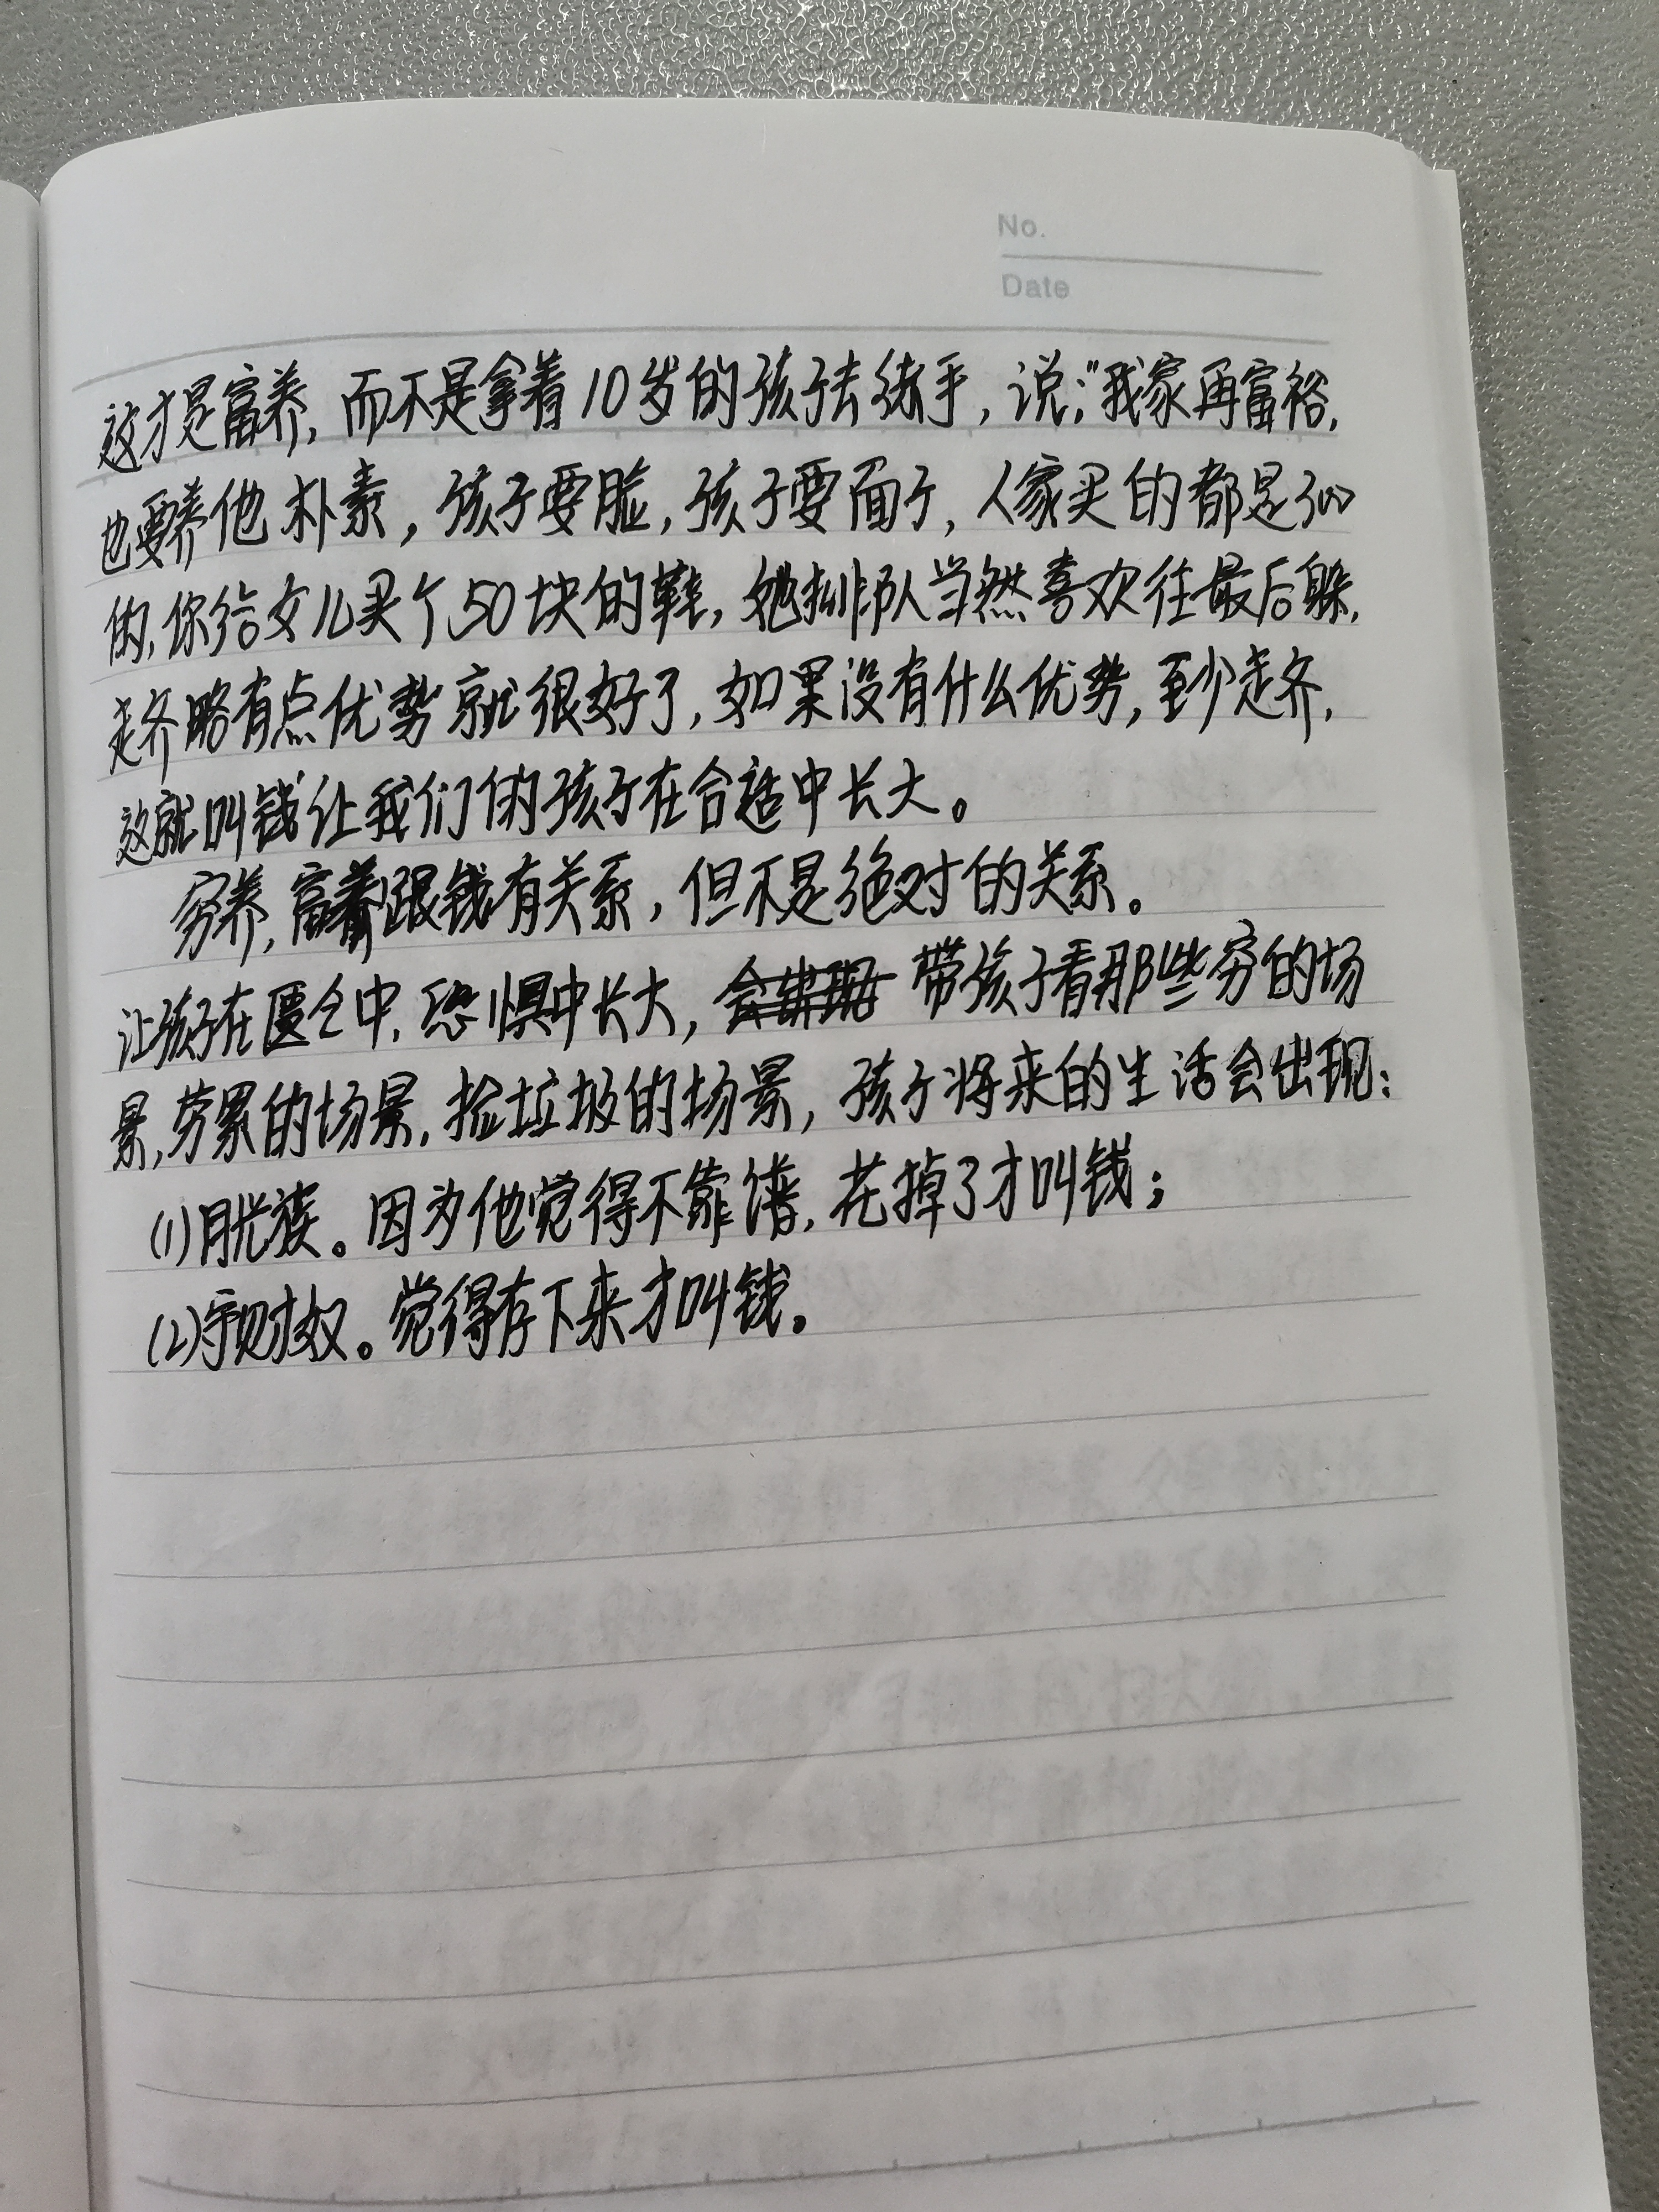 No.
Date
这才是富养，而不是拿着10岁的孩子去练手，说："我家再富裕，
也要养他朴素，孩子要脸，孩子要面子，人家买的都是300
的，你给女儿买个50块的鞋，她排队当然喜欢往最后躲，
走齐略有点优势就很好了，如果没有什么优势，至少走齐，
这就叫钱让我们的孩子在合适中长大。
穷养，富养跟钱有关系，但不是绝对的关系。
让孩子在匮乏中，恐惧中长大，带孩子看那些穷的场
景，劳累的场景，捡垃圾的场景，孩子将来的生活会出现：
(1)月光族。因为他觉得不靠谱，花掉了才叫钱；
(2)守财奴。觉得存下来才叫钱。